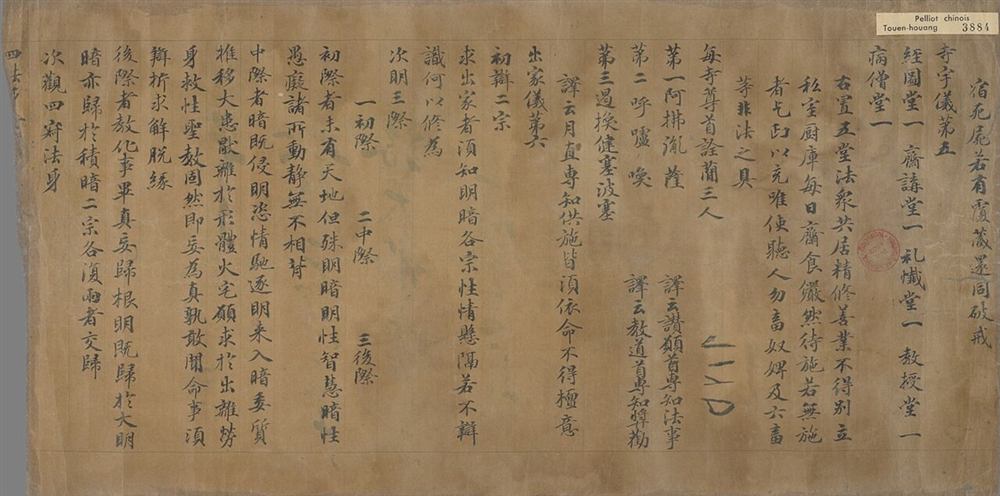 Pelliot chinois
Touen-houang 3884
宿死屍若有覆藏還同破戒
寺宇儀第五
經圖堂一 齋講堂一 礼懺堂一 教授堂一
病僧堂一
右置五堂法眾共居精修善業不得別立
私室厨庫每日齋食儼然待施若無施
者乞丐以充唯使聽人勿畜奴婢及六畜
等非法之具
每寺尊首詮蕳三人
第一阿拂胤薩 譯云讚願首專知法事
第二呼嚧喚 譯云教道首專知獎勸
第三遏換健塞波塞
譯云月直專知供施皆須依命不得擅意
出家儀第六
初辯二宗
求出家者須知明暗各宗性情懸隔若不辯
識何以修為
次明三際
一初際 二中際 三後際
初際者未有天地但殊明暗明性智慧暗性
愚癡諸所動靜無不相背
中際者暗既侵明恣情馳逐明来入暗委質
推移大患猒離於形體火宅願求於出離勞
身救性聖教固然即妄為真孰敢聞命事須
辯折求解脫緣
後際者教化事畢真妄歸根明既歸於大明
暗亦歸於積暗二宗各復兩者交歸
次觀四寂法身
四法身